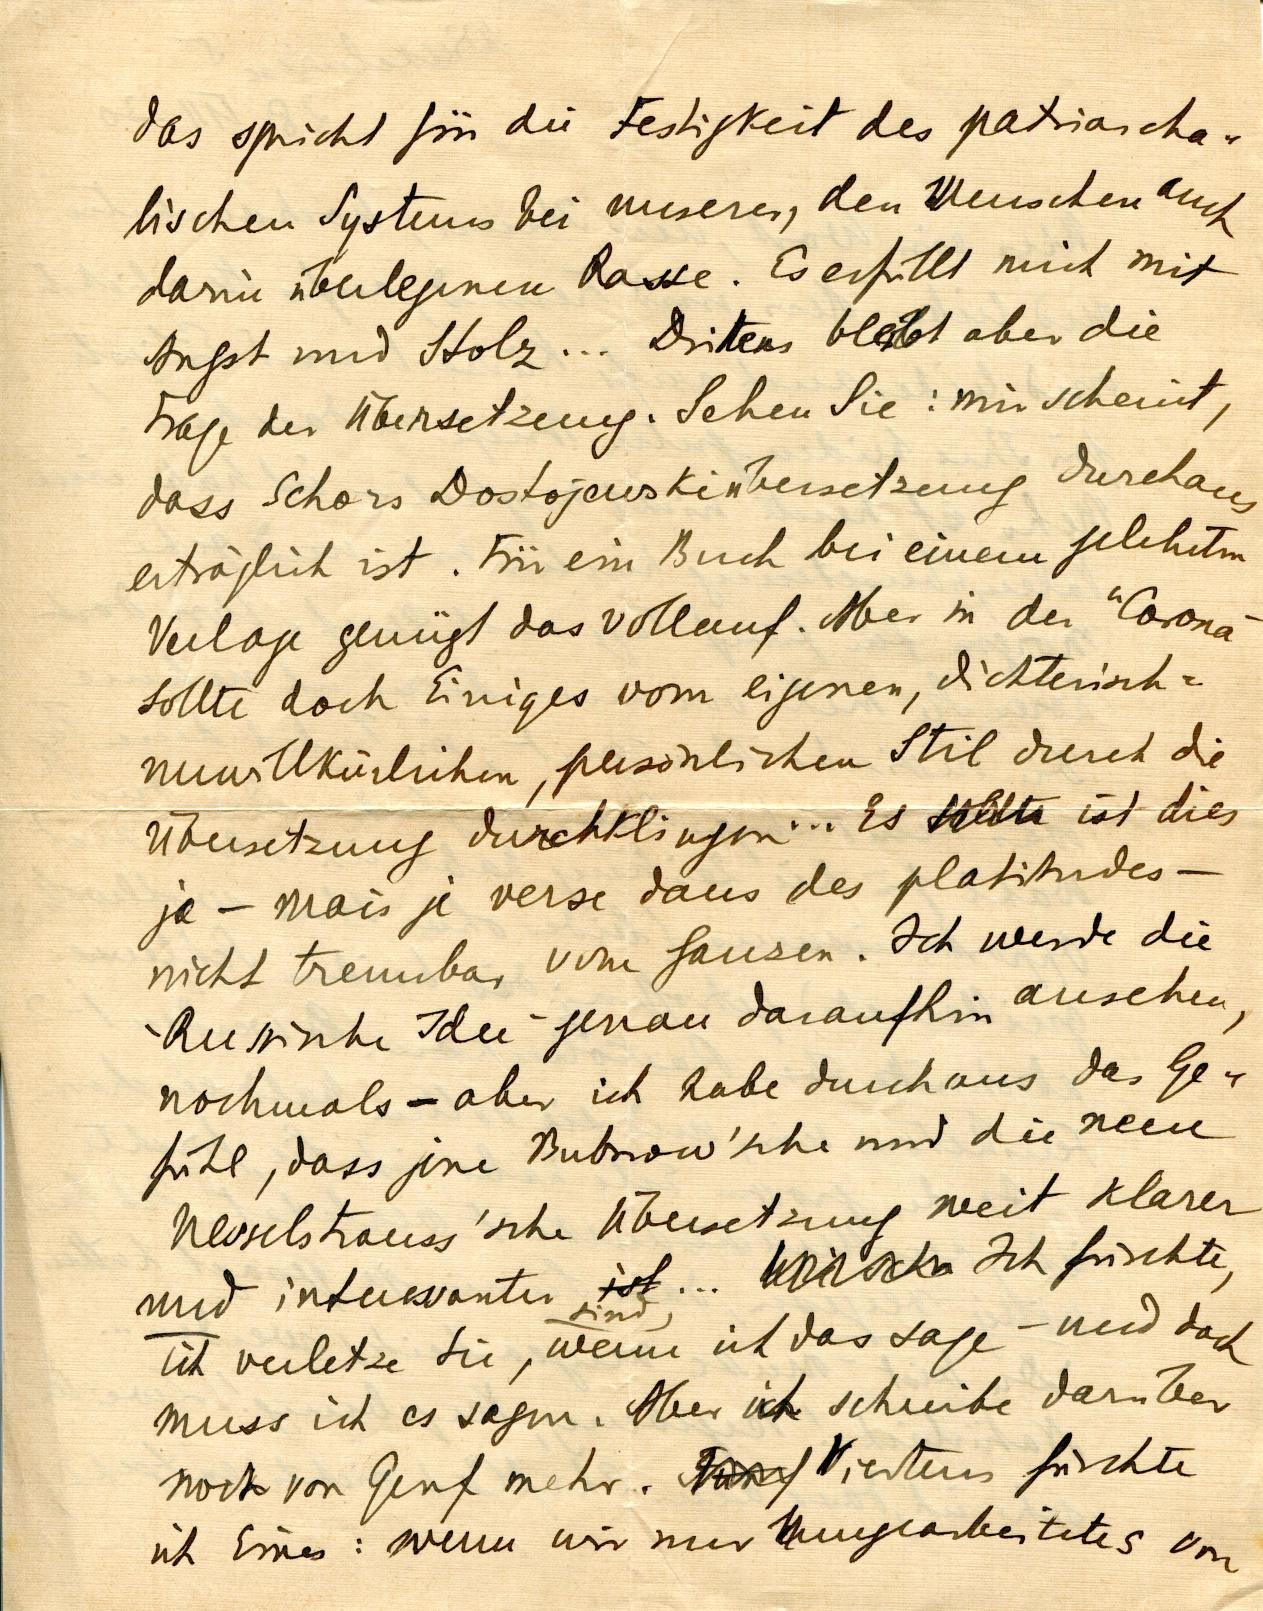 das spricht für die Festigkeit des patriarcha-
lischen Systems bei unserer, den Menschen auch
darin überlegenen Rasse. Es erfüllt mich mit
Angst und Stolz... Drittens bleibt aber die
Frage der Übersetzung. Sehen Sie: mir scheint,
dass Schors Dostojewskiübersetzung durchaus
erträglich ist. Für ein Buch bei einem gelehrten
Verlage genügt das vollauf. Aber in der "Corona"
sollte doch Einiges vom eigenen, dichterisch-
unwillkürlichen, persönlichen Stil durch die
Übersetzung durchklingen... Es sollte ist dies
ja – mais je verse dans des platitudes –
nicht trennbar vom Ganzen. Ich werde die
"Russische Idee" genau daraufhin ansehen,
nochmals – aber ich habe durchaus das Ge-
fühl, dass jene Bubnow'sche und die neue
Nesselstrauss'sche Übersetzung weit klarer
und interessanter ist sind, ... Ich fürchte,
ich verletze Sie, wenn ich das sage – und doch
muss ich es sagen. Aber ich schreibe darüber
noch von Genf mehr. Fünf Viertens fürchte
ich Eines: wenn wir nur Umgearbeitetes von